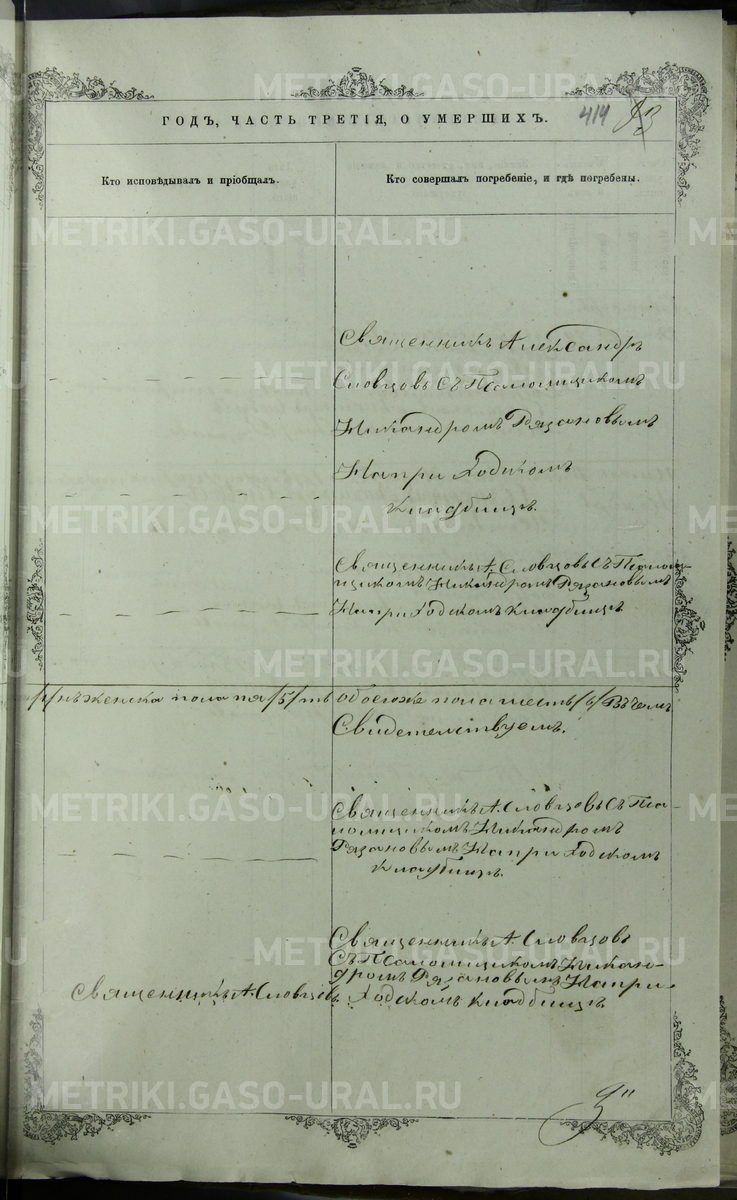 ГОДЪ, ЧАСТЬ ТРЕТІЯ, О УМЕРШИХЪ.
414
Кто исповѣдывалъ и пріобщалъ.
Кто совершалъ погребеніе, и гдѣ погребены.
Священникъ Александръ
Словцовъ съ Псаломщикомъ
Никандромъ Рязановымъ
На приходскомъ
кладбищѣ.
Священникъ А. Словцовъ съ Псалом-
щикомъ Никандромъ Рязановымъ
На приходскомъ кладбищѣ
женска пола пя /5/ ть обоегоже пола шесть /6/ Въ чемъ
Свидетельствуемъ.
Священникъ А. Словцовъ съ Пса-
ломщикомъ Никандромъ
Рязановымъ На приходскомъ
кладбищѣ.
Священникъ А. Словцовъ
съ Псаломщикомъ Никан-
дромъ Рязановымъ На при-
Священникъ А. Словцовъ. ходскомъ кладбищѣ.
METRIKI.GASO-URAL.RU